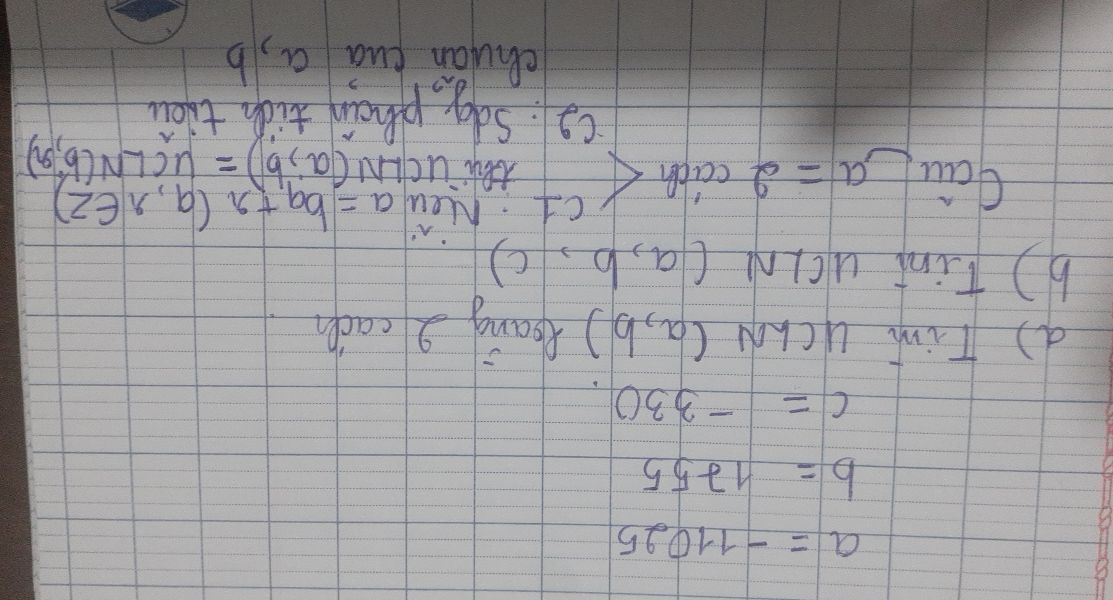 a = -11025
b = 1755
c = -330.
a) Tìm UCLN (a, b) bằng 2 cách
b) Tìm UCLN (a, b, c)
C1: Nếu a = bq + r (q, r ∈ Z)
Câu a = 2 cách < thì UCLN (a; b) = UCLN (b, r)
C2: Sdg phân tích tiêu
chuẩn của a, b